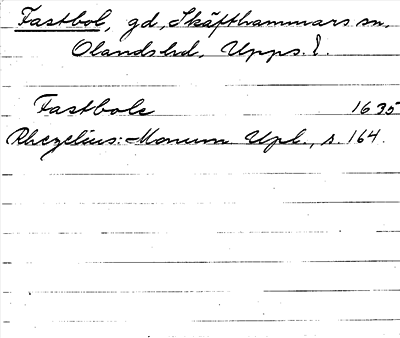 Fastbol, gd, Skäfthammars sn,
Olandshd, Upps. l.
Fastbole 1635
Rhezelius: Monum. Upl., s. 164.